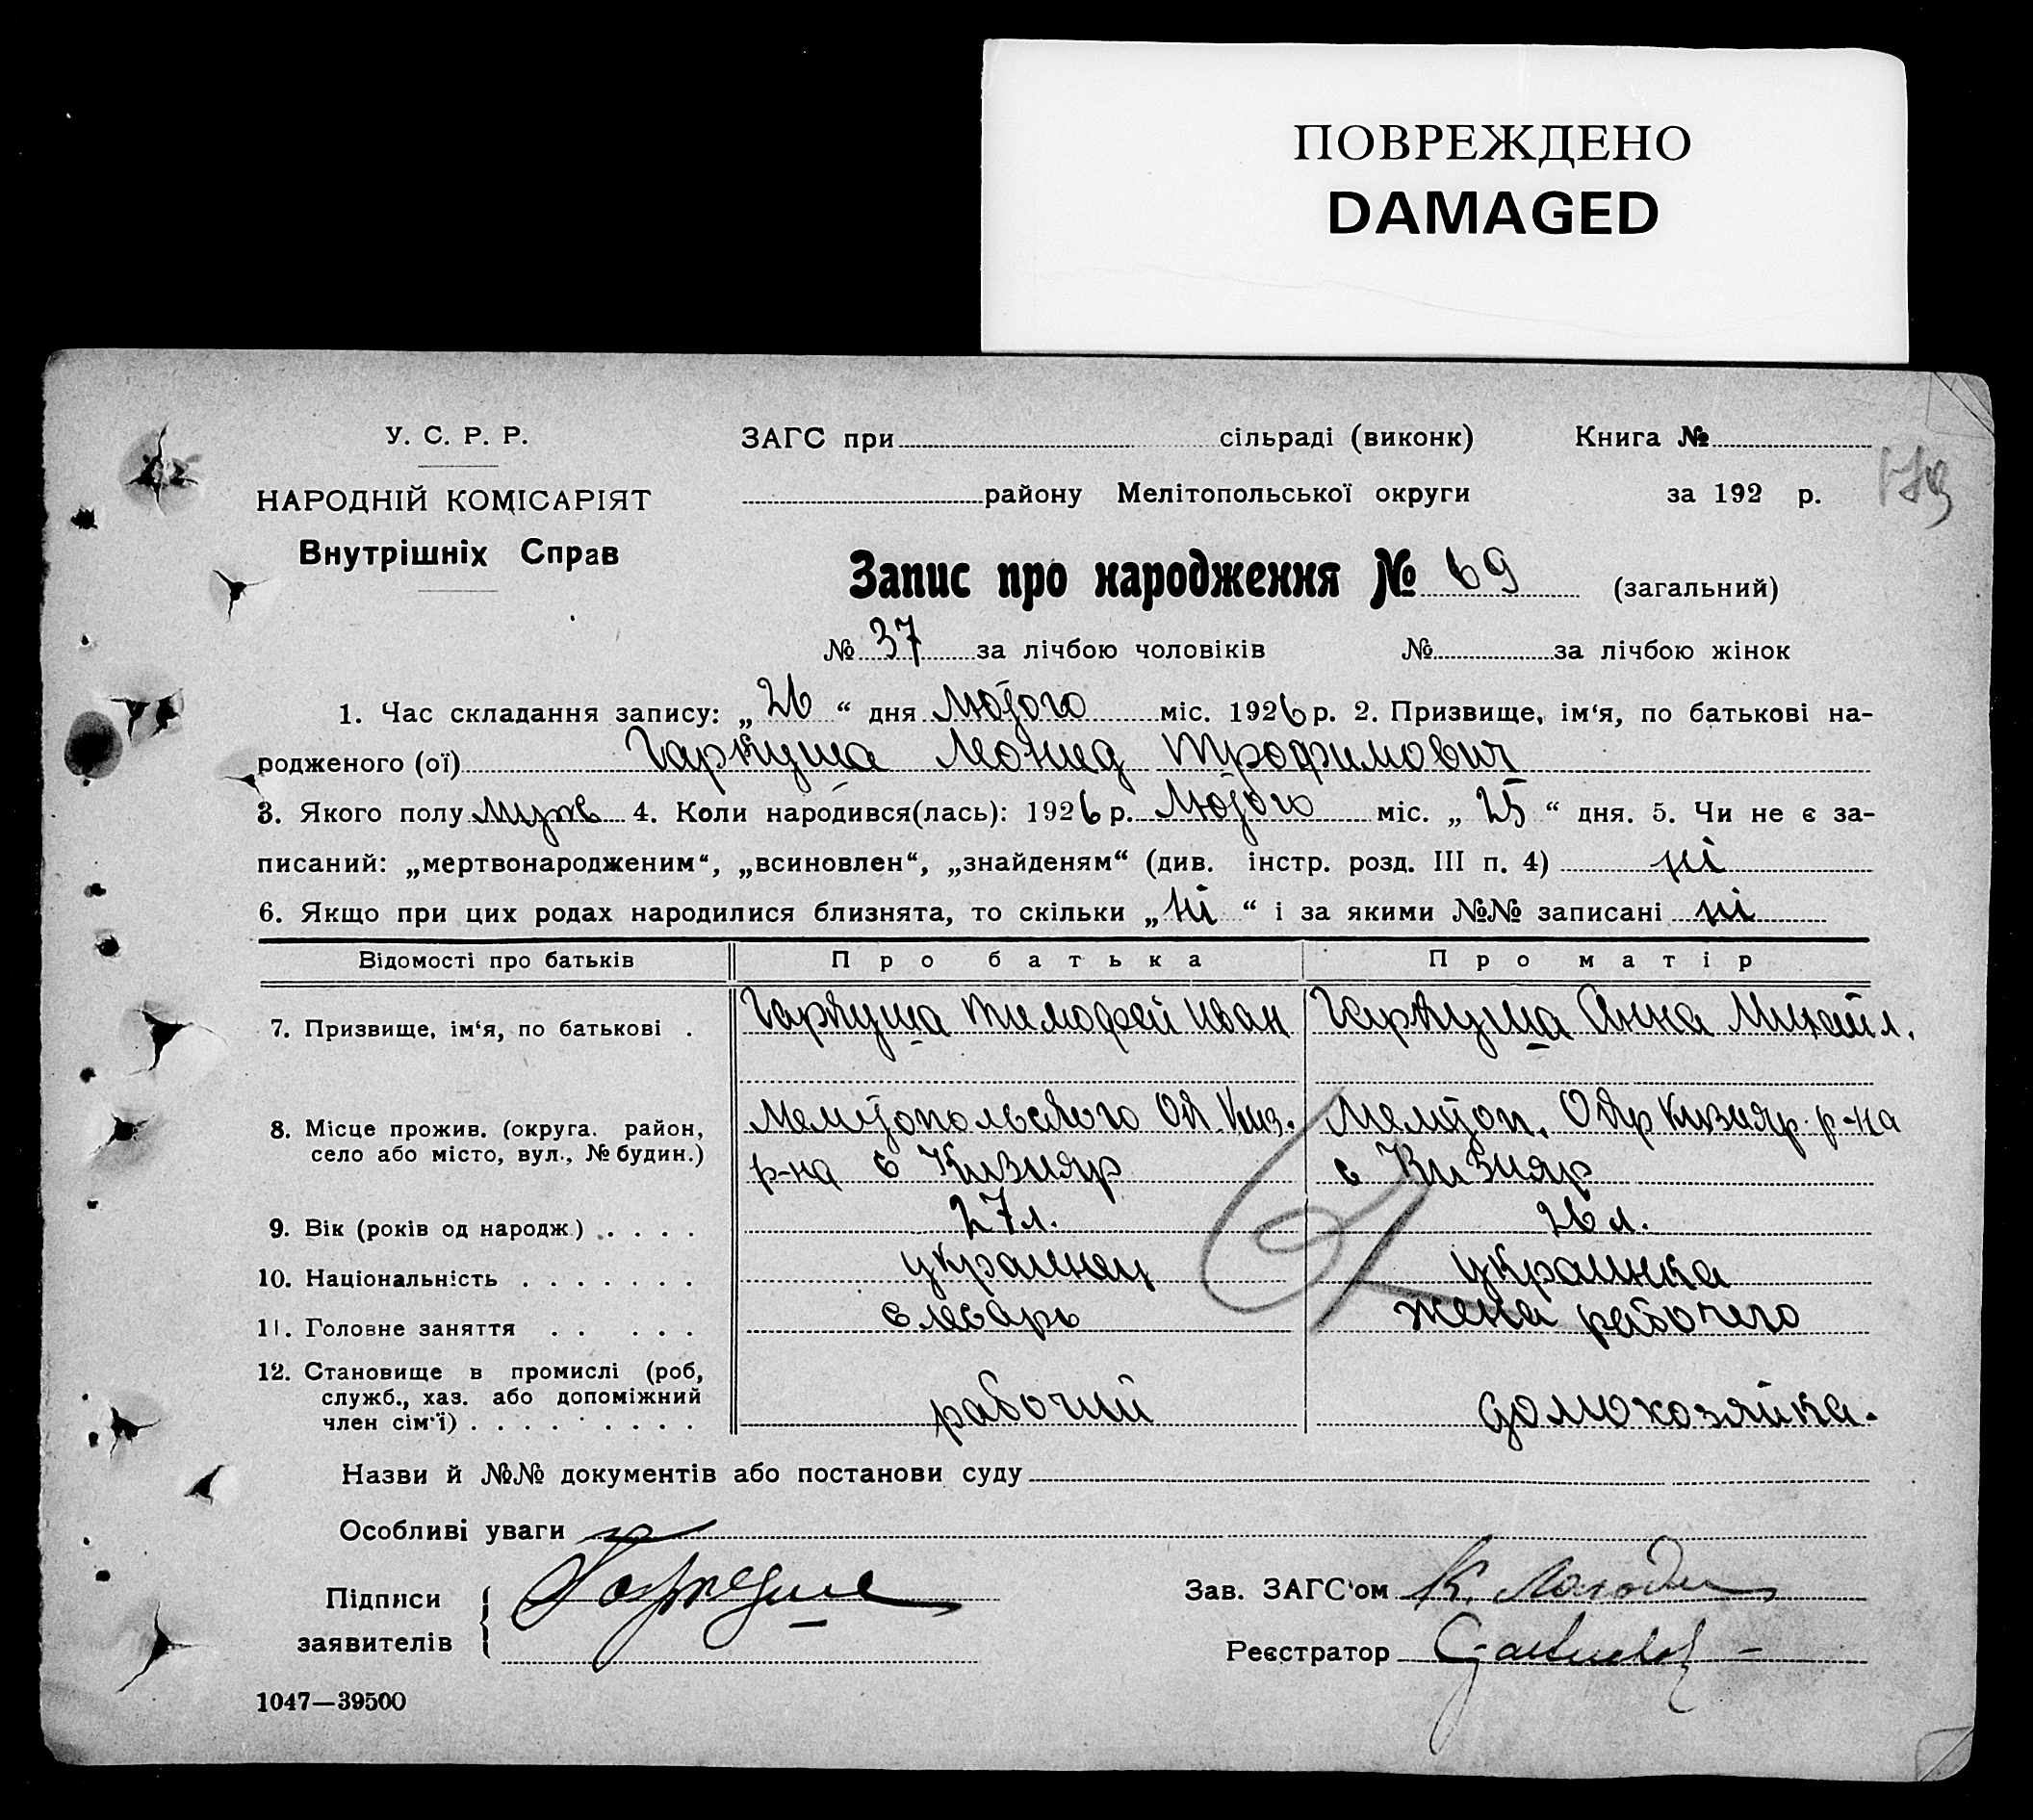 ПОВРЕЖДЕНО
DAMAGED
У. С. Р. Р.
НАРОДНІЙ КОМІСАРІЯТ
Внутрішніх Справ
ЗАГС при сільраді (виконк) Книга №
району Мелітопольської округи за 192 р.
Запис про народження № 69 (загальний)
№ 37 за лічбою чоловіків № за лічбою жінок
1. Час складання запису: „26“ дня Лютого міс. 1926 р. 2. Призвище, ім‘я, по батькові на-
родженого (ої) Гаркуша Леонид Трофимович
3. Якого полу муж 4. Коли народився(лась): 1926 р. Лютого міс. „25“ дня. 5. Чи не є за-
писаний: „мертвонародженим“, „всиновлен“, „знайденям“ (див. інстр. розд. III п. 4) ні
6. Якщо при цих родах народилися близнята, то скільки „ні“ і за якими №№ записані ні
Відомості про батьків Про батька Про матір
7. Призвище, ім‘я, по батькові . Гаркуша Тимофей Иван Гаркуша Анна Михайл.
8. Місце прожив. (округа. район, Мелитопольского Ок. Киз. Мелитоп. Окр Кизияр. р-на
село або місто, вул., № будин.) р-на с Кизияр с Кизияр
9. Вік (років од народж.) . . . . 27 л. 26 л.
10. Національність . . . . . . . украинец украинка
11. Головне заняття . . . . . слесарь жена рабочего
12. Становище в промислі (роб,
служб., хаз. або допоміжний
член сім‘ї) . . . . . . . . . рабочий домохозяйка.
Назви й №№ документів або постанови суду
Особливі уваги
Підписи Гаркуша Зав. ЗАГС‘ом К.
заявителів Реєстратор
1047—39500